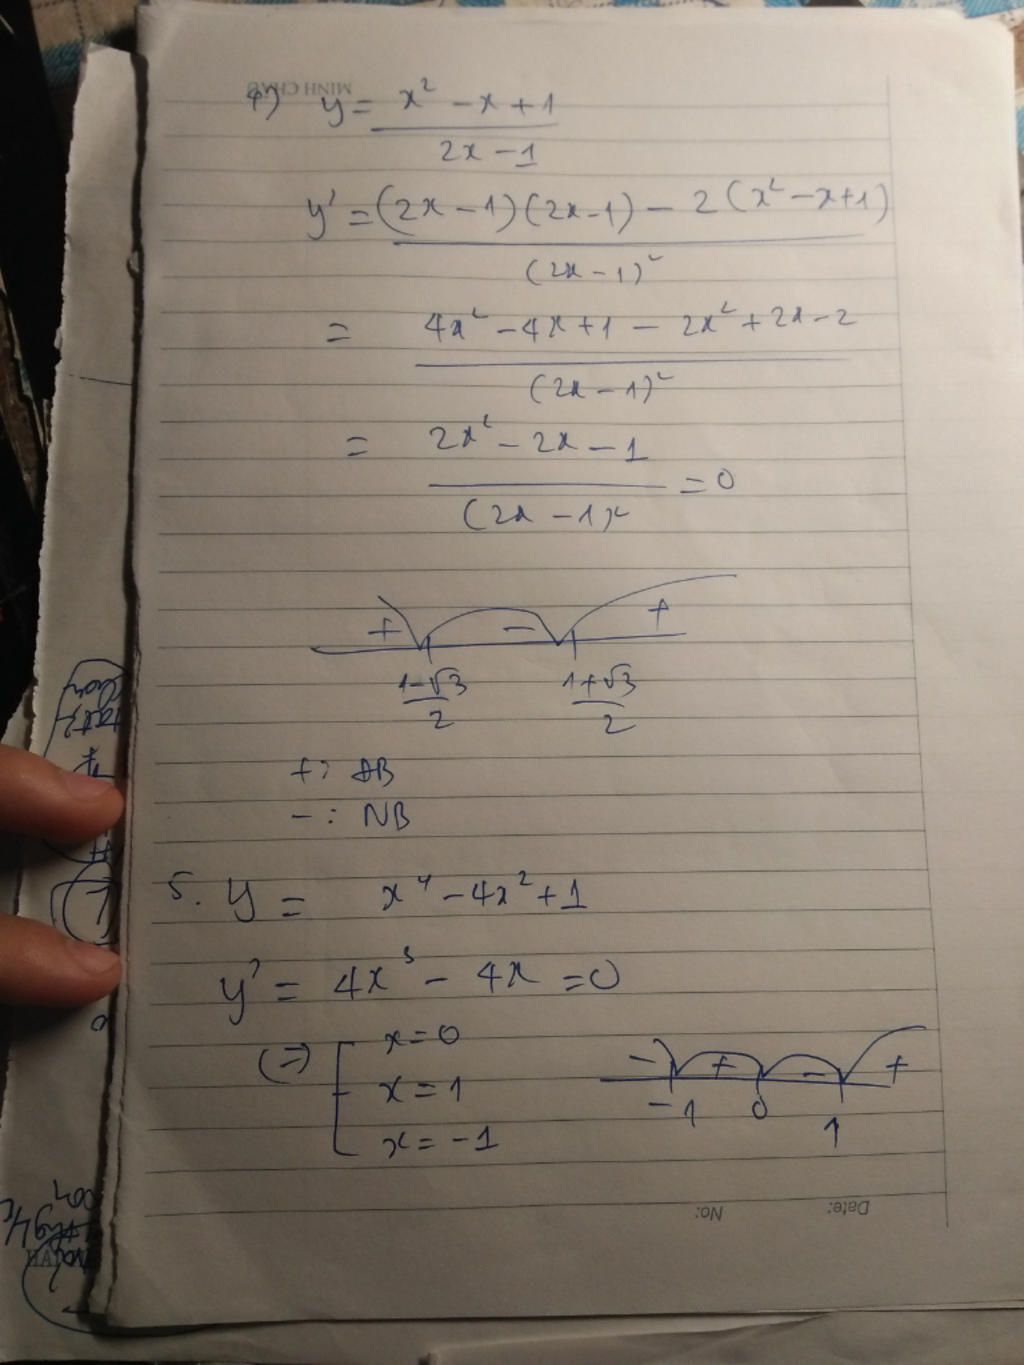 MINH CHAU
4) y = x² - x + 1
2x - 1
y' = (2x - 1)(2x - 1) - 2(x² - x + 1)
(2x - 1)²
= 4x² - 4x + 1 - 2x² + 2x - 2
(2x - 1)²
= 2x² - 2x - 1
(2x - 1)² = 0
+ - +
1-√3 1+√3
2 2
+: ĐB
- : NB
5. y = x⁴ - 4x² + 1
y' = 4x³ - 4x = 0
(=) x = 0
x = 1
x = -1
- + - +
-1 0 1
No: Date: